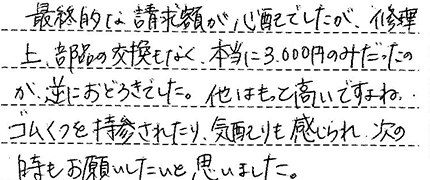 最終的な請求額が心配でしたが、修理
上、部品の交換もなく、本当に3.000円のみだったの
が、逆におどろきでした。他はもって高いですよね..
ゴムくつを持参されたり、気配りも感じられ、次の
時もお願いしたいと思いました。